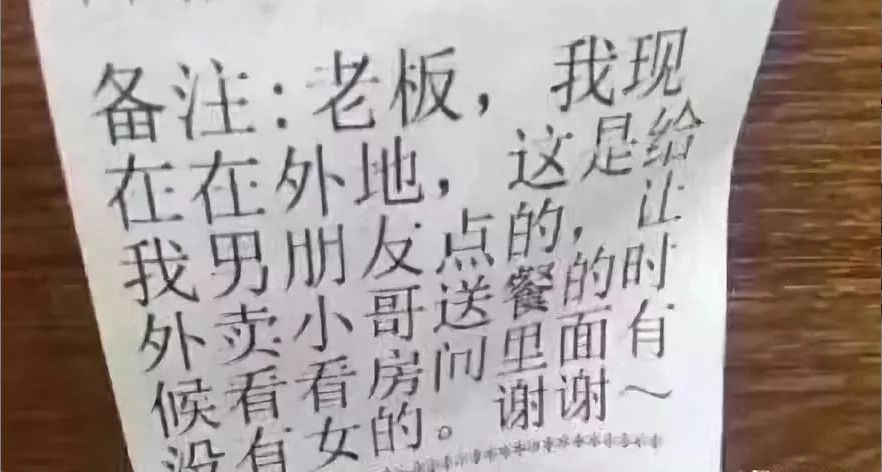 备注:老板，我现
在在外地，这是给
我男朋友点的，让
外卖小哥送餐的时
候看看房间里面有
没有女的。谢谢~